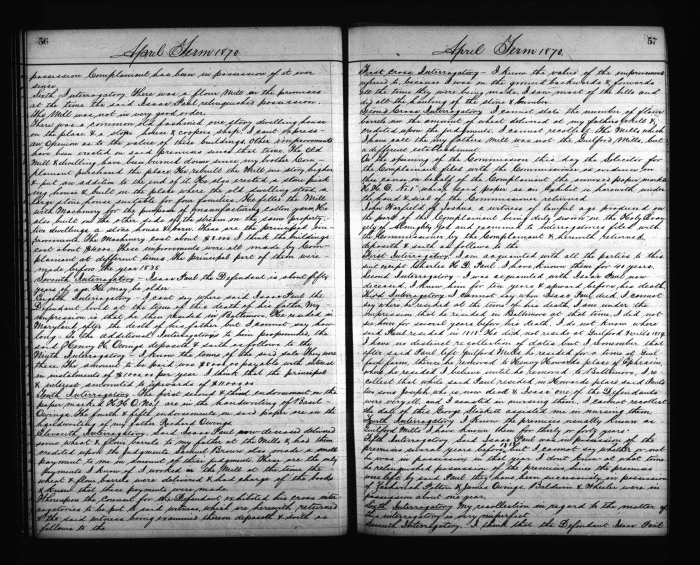 56
April Term 1870
possession Complainant has been in possession of it ever
since
Sixth Interrogatory There was a flour Mill on the premises
at the time the said Isaac Paul relinquished possession.
The Mill was not in very good order.
There was a common old fashioned one story dwelling house
on the place & a store house & coopers shop. I cant express
an opinion as to the value of these buildings. Other improvements
have been erected on said premises since that time. The Old
Mill & dwelling have been burned down since my brother Com-
plainant purchased the place. He rebuilt the Mill one story higher
& put an addition to the end of it. He also erected a stone pack-
ing house & built on the place where the old dwelling stood, a
large stone house suitable for four families. He filled the Mill
with Machinery for the purpose of manufacturing cotton yarn, & He
also built on the other side of the stream on the same property
two dwellings a stone house & barn. These are the principal im-
provements. The Machinery cost about $8.000. I think the buildings
cost about $6000. These improvements were all made by Com-
plainant at different times. The principal part of them were
made before the year 1838
Seventh Interrogatory - Isaac Paul the Defendant is about fifty
years of age. He may be older
Eighth Interrogatory - I cant say where said Isaac Paul the
Defendant lived at the time of the death of his father. My
impression is that he then resided in Baltimore. He resided in
Maryland after the death of his father but I cannot say how
long. To the additional Interrogatories to him propounded, the
said Richard H. Owings deposeth & saith as follows to the
Ninth Interrogatory - I know the terms of the said sale. They were
these. The amount to be paid was $8000 payable with Interest
in instalments of $1000 per year. I think that the principal
& interest amounted to upwards of $11.000.00
Tenth Interrogatory - The first second & third endorsement on the
paper marked H. H. O. No 1. are in the handwriting of Basil
Owings. The fourth & fifth endorsements on said paper are in the
handwriting of my father Richard Owings
Eleventh Interrogatory. Said Isaac Paul now deceased delivered
some wheat & flour barrels to my father at the Mills & has them
credited upon the judgments. Samuel Brown also made a small
payment to me on account of the judgments. These are the only
payments I know of. I worked in the Mill at the time the
wheat & flour barrels were delivered & had charge of the books
& know that these payments were made.
Whereupon the Counsel for the Defendant exhibited his cross inter-
rogatories to be put to said witness, which are herewith returned
& the said witness being examined thereon deposeth & saith as
follows to the
57
April Term 1870.
First Cross Interrogatory - I know the value of the improvements
referred to because I was on the ground backwards & forwards
all the time they were being made. I saw most of the bills and
did all the hauling of the stone & lumber.
Second Cross Interrogatory. I cannot state the number of flour
barrels nor the amount of wheat delivered at my fathers Mills &
credited upon the judgments. I cannot recollect. The Mills which
I have called my fathers Mill was not the Guilford Mills, but
a different establishment.
At the opening of the Commission this day the Solicitor for
the Complainant filed with the Commissioner as evidence in
this cause on behalf of the Complainant the annexed paper marked
H. H. O. No 1. which said paper as an Exhibit is herewith under
the hand & seal of the Commissioner returned
John Warfield of Joshua a witness of lawful age produced on
the part of the Complainant being duly sworn on the Holy Evan-
gely of Almighty God and examined to Interrogatories filed with
the Commissioner by the Complainant & herewith returned
deposeth & saith as follows to the
First Interrogatory. I am acquainted with all the parties to this
suit except Charles H. D. Paul. I have known them for 40 years.
Second Interrogatory. I was acquainted with Isaac Paul now
deceased. I knew him for ten years & upwards before his death.
Third Interrogatory. I cannot say when Isaac Paul died. I cannot
say where he resided at the time of his death. I am under the
impression that he resided in Baltimore at that time. I did not
see him for several years before his death. I do not know where
said Paul resided in 1818. He did not reside at Guilford Mills in 1819.
I have no distinct recollection of dates, but I remember that
after said Paul left Guilford Mills he resided for a time at Guil-
ford farm, thence he removed to Henry Howards place of Ephraim,
where he resided I believe until he removed to Baltimore. I re-
collect that while said Paul resided on Howards place said Pauls
two sons Joseph who is now dead & Isaac one of the Defendants
was very ill, and I assisted in nursing them. I cannot recollect
the date of this. George Haslett assisted me in nursing them
Fourth Interrogatory I know the premises usually known as
Guilford Mills. I have known them for thirty or forty years.
Fifth Interrogatory Said Isaac Paul was in possession of the
premises several years before 1819, but I cannot say whether or not
he was in possession in that year. I dont know at what time
he relinquished possession of the premises. Since the premises
were left by said Paul they have been successively in possession
of Jeremiah Potter & Henry Owings, Baldwin & Wheeler were in
possession about one year.
Sixth Interrogatory My recollection in regard to the matter of
this interrogatory is very imperfect.
Seventh Interrogatory. I think that the Defendant Isaac Paul